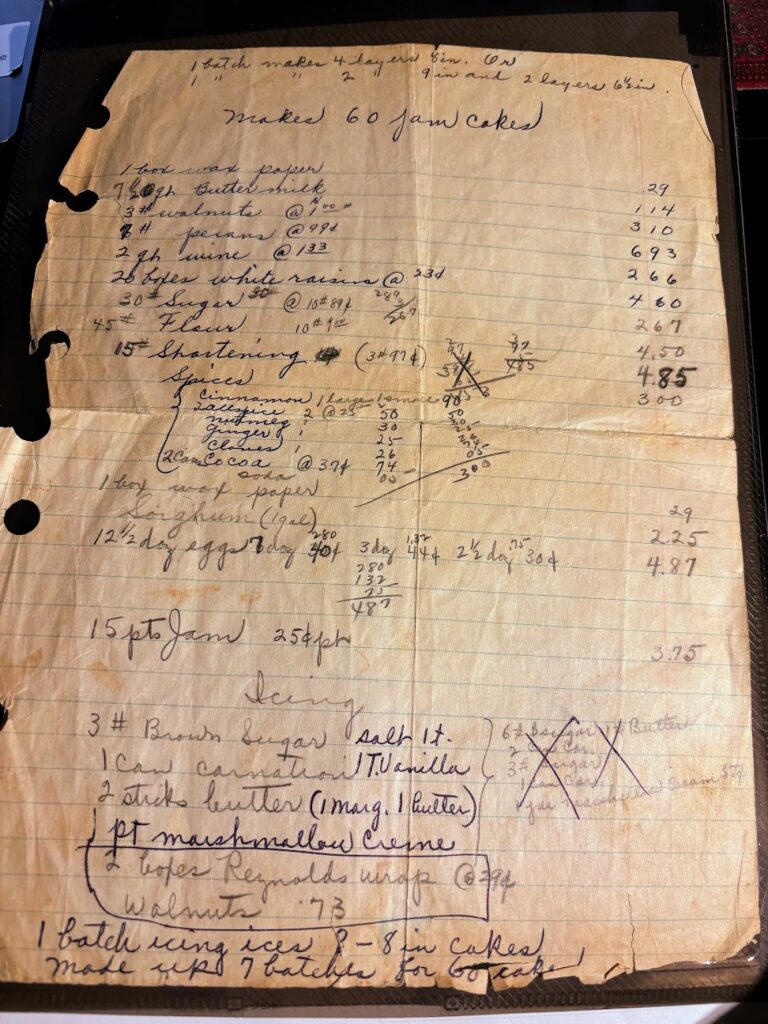 1 batch makes 4 layers 8in. Or
1 " " 2 " 9in and 2 layers 6½in.
Makes 60 Jam cakes
1 box wax paper 29
7 gh Buttermilk 114
3# walnuts @ 1⁰⁰ # 310
# pecans @ 99¢ 693
2 gh wine @ 1 33 266
20 boxes white raisins @ 23¢ 460
30# Sugar 30# @ 10# 89¢ 267
45# Flour 10# 1⁰⁰ 4.50
15# Shortening (3# 97¢) 485 4.85
Spices 300
Cinnamon 1 large 1 small 90
2 allspice 2 @ 25 50
nutmeg 30
Ginger 25
Cloves 26
2 Can Cocoa @ 37¢ 74
300
soda
1 box wax paper 29
Sorghum (1 gal) 2.25
12½ doz eggs 7 doz 40¢ 280 3 doz 44¢ 1.32 2½ doz 30¢ .75 4.87
280
132
75
487
15 pts Jam 25¢ pt 3.75
Icing
3 # Brown Sugar salt 1t.
1 Can carnation 1T. Vanilla
2 sticks butter (1 marg. 1 butter)
1 pt marshmallow Creme
6# B sugar 1# Butter
2 Car.
3# Sugar
1 can Car.
1 jar marshmallow cream 35¢
2 boxes Reynolds wrap @ 29¢
Walnuts .73
1 batch icing ices 8 - 8 in cakes
Made up 7 batches for 60 cake